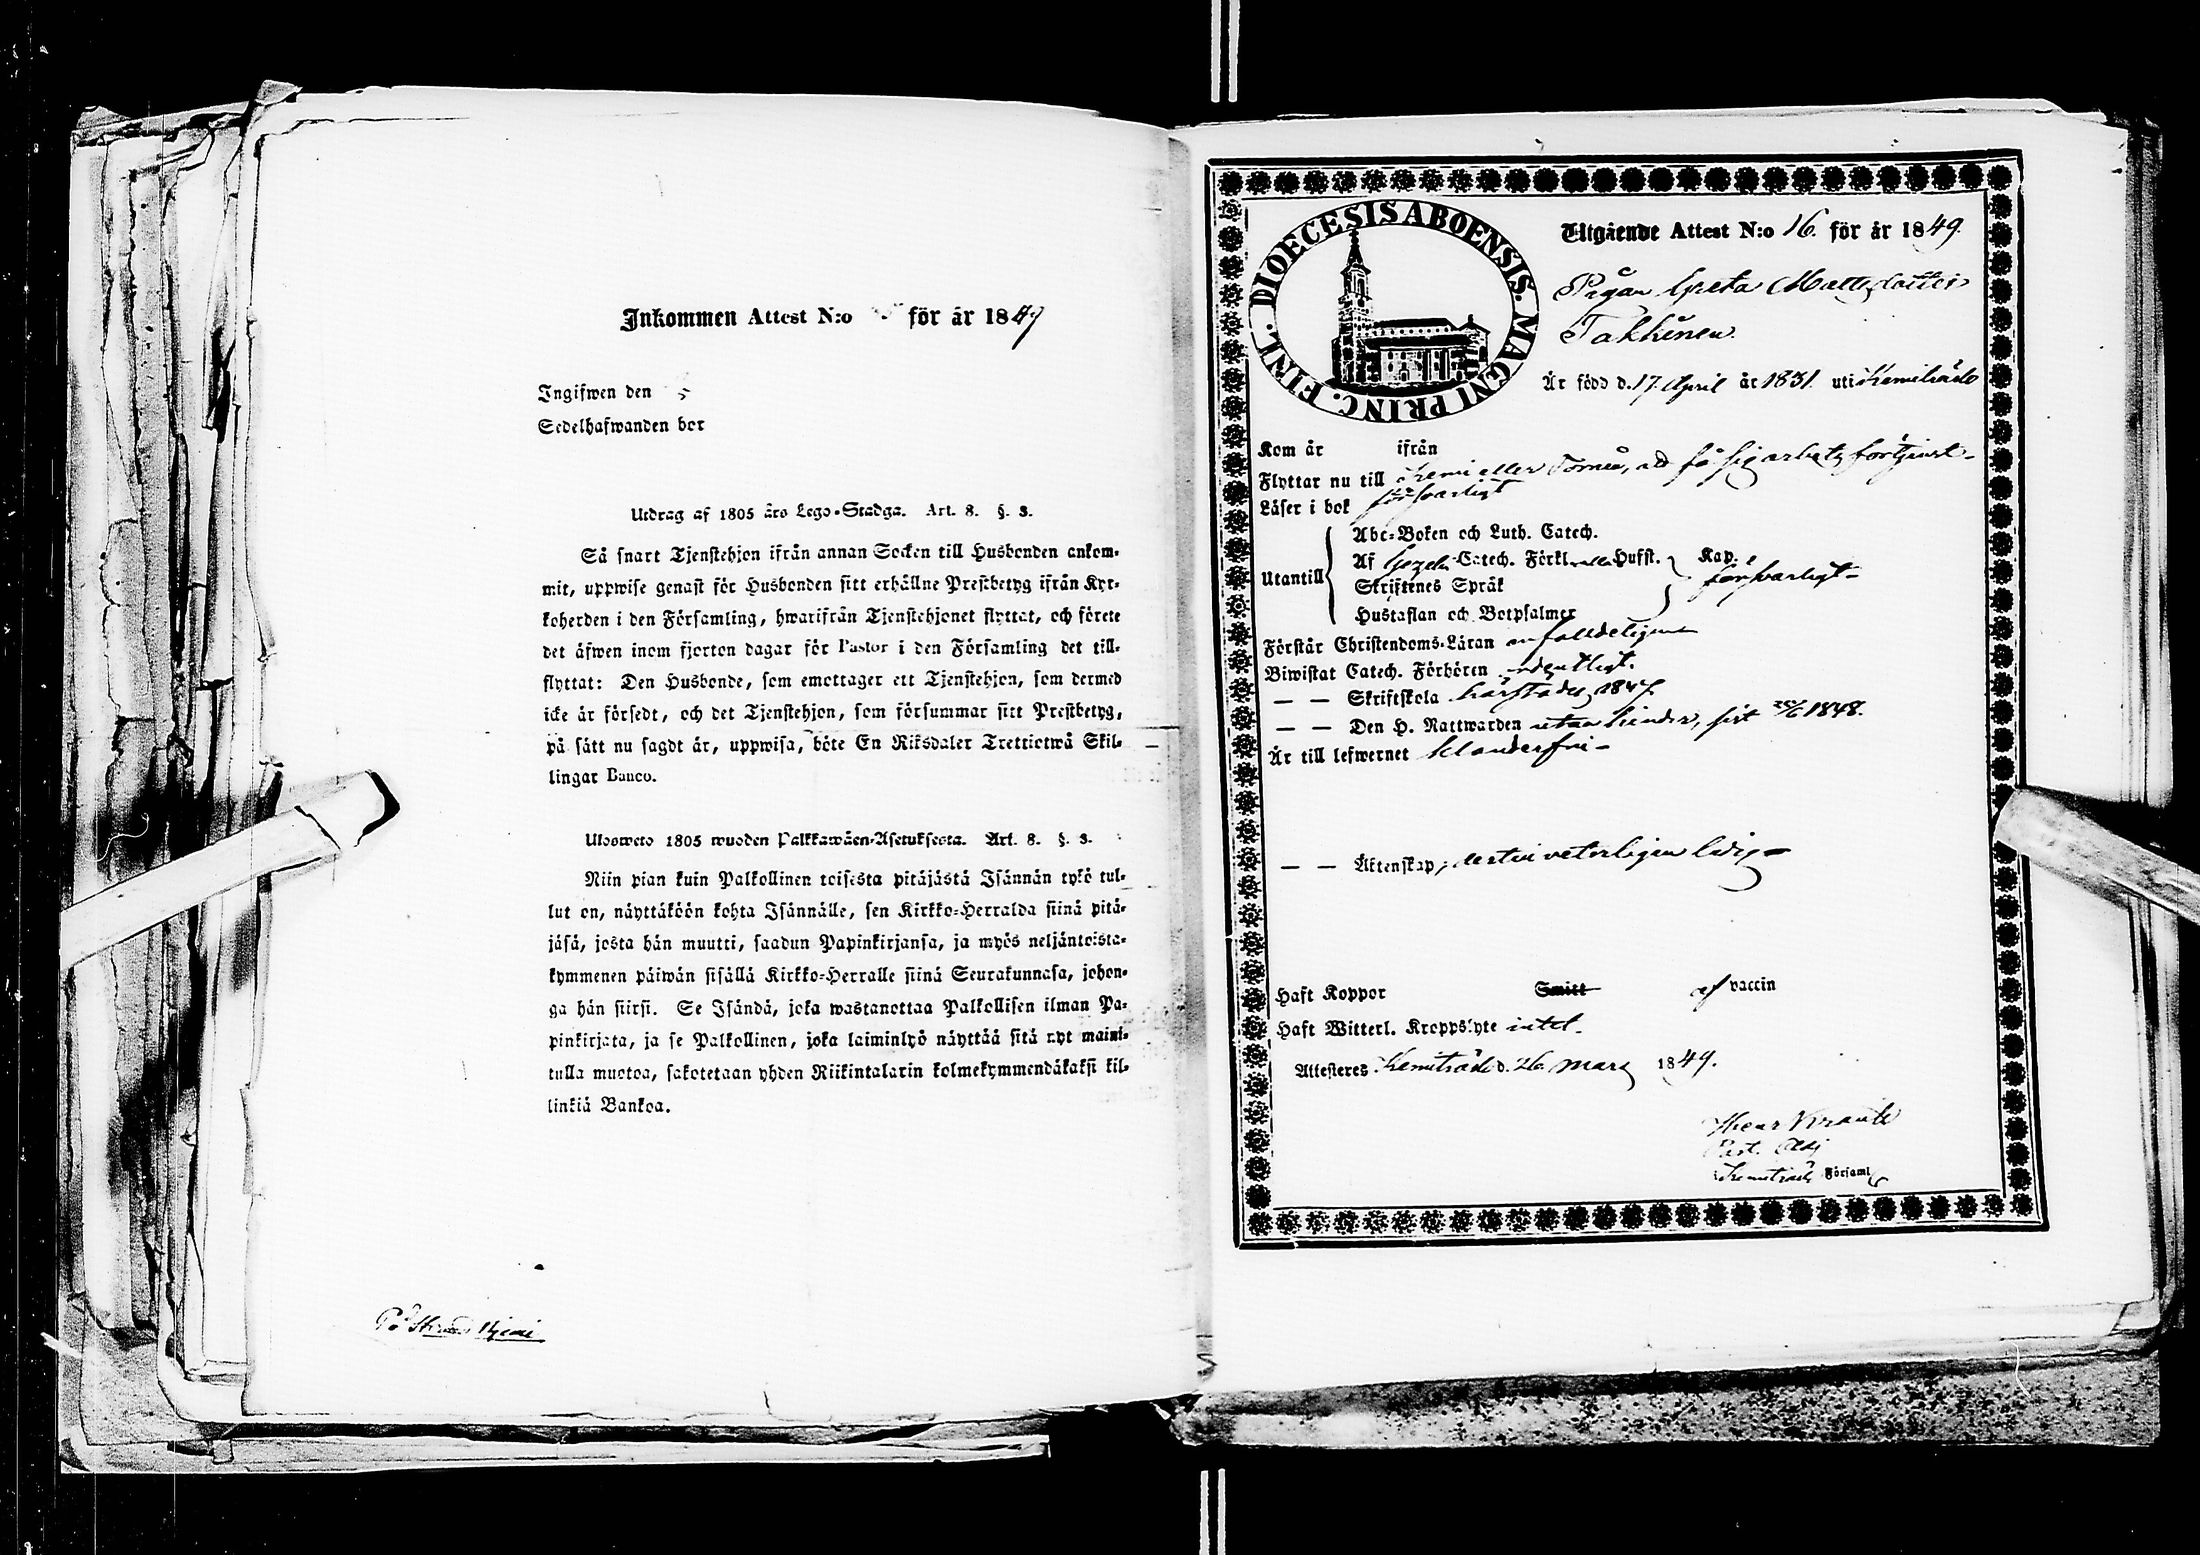 Inkommen Attest N:o för år 1849
Ingifwen den
Sedelhafwanden bor
Utdrag af 1805 års Lego-Stadga. Art. 8. §. 3.
Så snart Tjenstehjon ifrån annan Socken till Husbonden ankom-
mit, uppwise genast för Husbonden sitt erhållne Prestbetyg ifrån Kyr-
koherden i den Församling, hwarifrån Tjenstehjonet flyttat, och förete
det äfwen inom fjorton dagar för Pastor i den Församling det till-
flyttat: Den Husbonde, som emottager ett Tjenstehjon, som dermed
icke är försedt, och det Tjenstehjon, som försummar sitt Prestbetyg,
på sätt nu sagdt är, uppwisa, böte En Riksdaler Trettiotwå Skil-
lingar Banco.
Ulosweto 1805 wuoden Palkkawäen-Asetuksesta. Art. 8. §. 3.
Niin pian kuin Palkollinen toisesta pitäjästä Isännän tykö tul-
lut on, näyttäköön kohta Isännälle, sen Kirkko-Herralda siinä pitä-
jäsä, josta hän muutti, saadun Papinkirjansa, ja myös neljäntoista-
kymmenen päiwän sisällä Kirkko-Herralle siinä Seurakunnasa, johon-
ga hän siirsi. Se Isändä, joka wastanottaa Palkollisen ilman Pa-
pinkirjata, ja se Palkollinen, joka laiminlyö näyttää sitä nyt maini-
tulla muotoa, sakotetaan yhden Riikintalarin kolmekymmendäkaksi kil-
linkiä Bankoa.
På
DIOECESIS ABOENSIS. MAGNI PRINC. FINL.
Utgående Attest N:o 16. för år 1849.
Pigan Greta Mattsdotter
Takkinen.
Är född d. 17. April år 1831. uti Kemiträsk
Kom år ifrån
Flyttar nu till Kemi eller Torneå, att få sig arbetsförtjenst-
Läser i bok försvarligt
Abc-Boken och Luth. Catech.
Utantill Af Gezelii Catech. Förkl. eller Hufst. Kap. försvarligt-
Skriftenes Språk
Hustaflan och Botpsalmer
Förstår Christendoms-Läran enfalldeligen
Biwistat Catech. Förhören ordentligt.
— — Skriftskola härstädes 1847.
— — Den H. Nattwarden utan hinder, sist 25/6 1848.
Är till lefwernet klanderfri-
— — Äktenskap, ledig-
Haft Koppor Smitt af vaccin
Haft Witterl. Kroppslyte intet.
Attesteres Kemiträsk d. 26. Mars 1849.
Past. Adj
Kemiträsk Församl